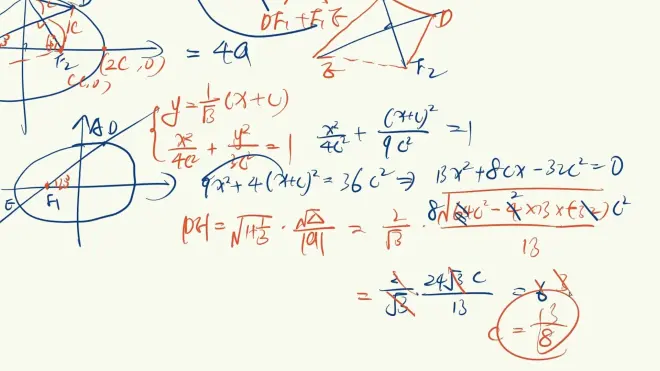 DF₁ + F₁E
= 4a
C
D
E
F₂
F₂
(2C, 0)
(C, 0)
y = 1/√3 (x+c)
x²/4c² + y²/3c² = 1
x²/4c² + (x+c)²/9c² = 1
A D
E F₁
9x² + 4(x+c)² = 36c² ⇒ 13x² + 8cx − 32c² = 0
|DE| = √(1+1/3) · √Δ/|a| = 2/√3 · 8√(64c² − 4×13×(−32)c²)/13
= 2/√3 · 24√3 c/13 = 6
c = 13/8